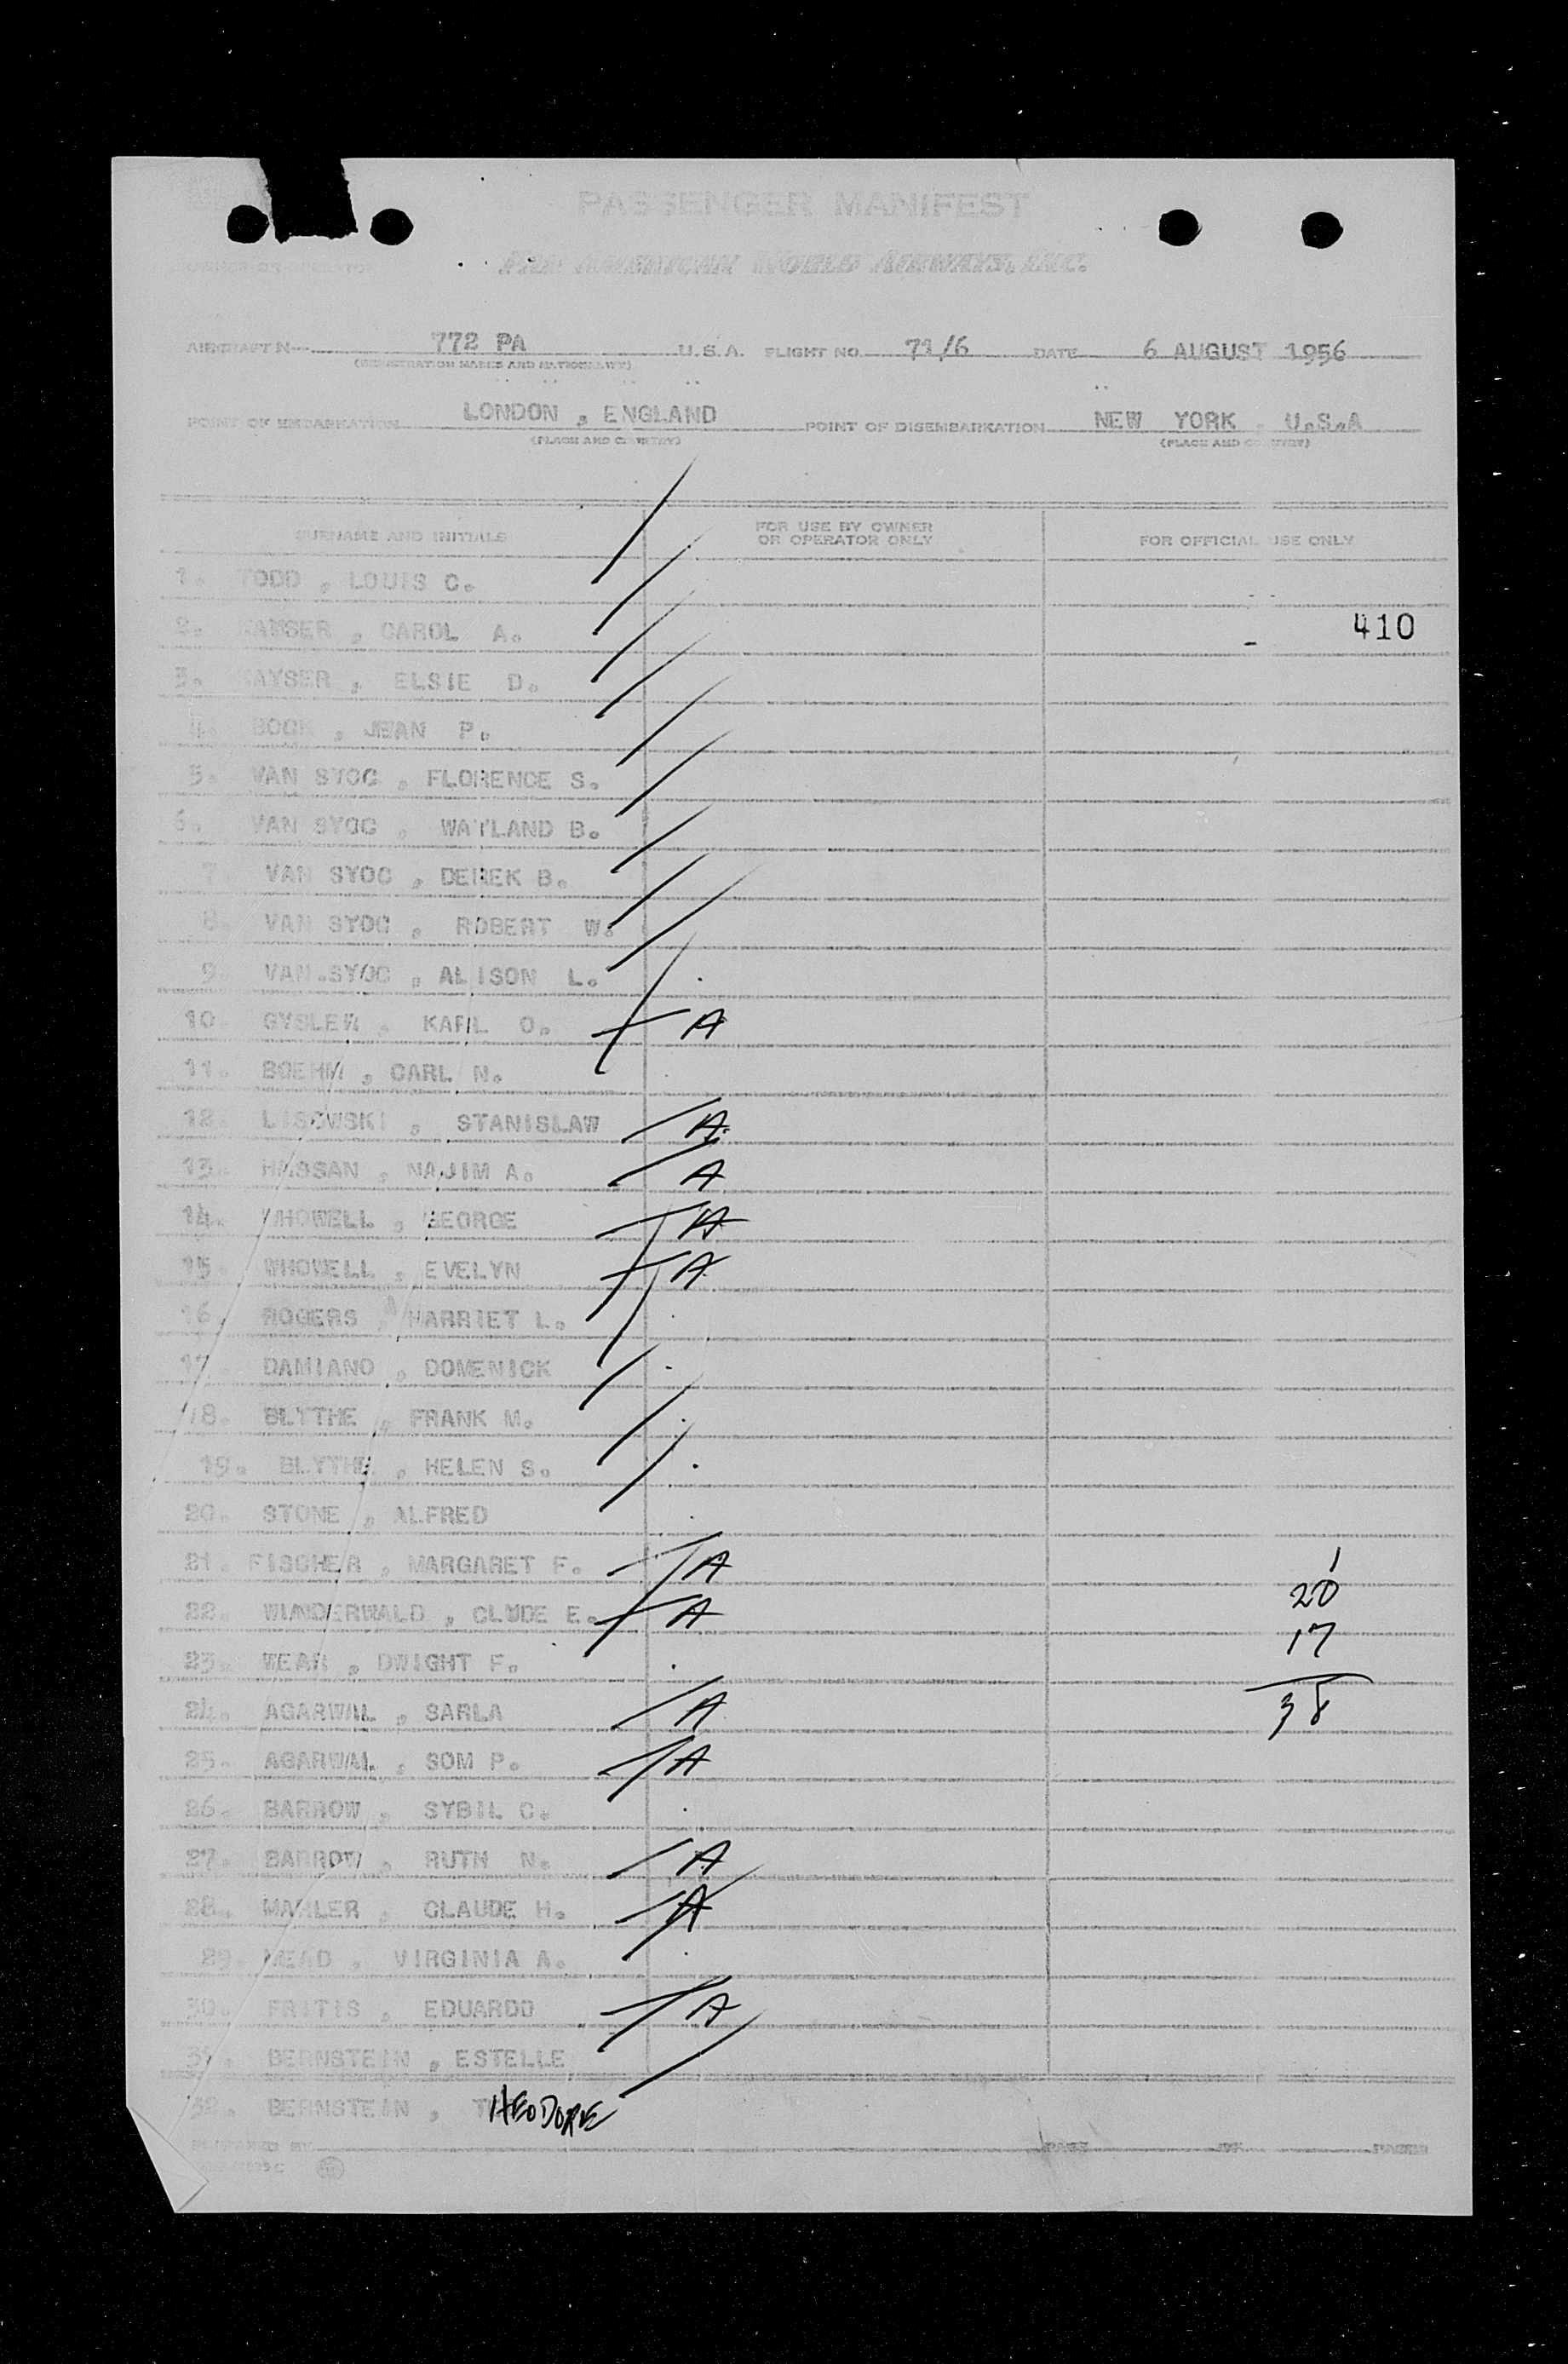 PASSENGER MANIFEST
PAN AMERICAN WORLD AIRWAYS, INC.
OWNER OR OPERATOR
AIRCRAFT N 772 PA U.S.A. FLIGHT NO. 71/6 DATE 6 AUGUST 1956
(REGISTRATION MARKS AND NATIONALITY)
POINT OF EMBARKATION LONDON , ENGLAND POINT OF DISEMBARKATION NEW YORK , U.S.A
(PLACE AND COUNTRY) (PLACE AND COUNTRY)
SURNAME AND INITIALS FOR USE BY OWNER OR OPERATOR ONLY FOR OFFICIAL USE ONLY
1. TODD , LOUIS C.
2. , CAROL A. 410
3. KAYSER , ELSIE D.
4. BOCK , JEAN P.
5. VAN SYOC , FLORENCE S.
6. VAN SYOC , WATLAND B.
7. VAN SYOC , DEREK B.
8. VAN SYOC , ROBERT W.
9. VAN SYOC , ALISON L.
10. GYSLER , KARL O. A
11. BOEHM , CARL N.
12. LISOWSKI , STANISLAW A
13. HASSAN , NAJIM A. A
14. WHOWELL , GEORGE A
15. WHOWELL , EVELYN A
16. ROGERS , HARRIET L.
17. DAMIANO , DOMENICK
18. BLYTHE , FRANK M.
19. BLYTHE , HELEN S.
20. STONE , ALFRED
21. FISCHER , MARGARET F. A
22. WUNDERWALD , CLYDE E. A
23. WEAR , DWIGHT F.
24. AGARWAL , SARLA A
25. AGARWAL , SOM P. A
26. BARROW , SYBIL C.
27. BARROW , RUTH N. A
28. MAHLER , CLAUDE H. A
29. MEAD , VIRGINIA A.
30. FRITIS , EDUARDO A
31. BERNSTEIN , ESTELLE
32. BERNSTEIN , THEODORE
1
20
17
38
PREPARED BY PAGE OF PAGES